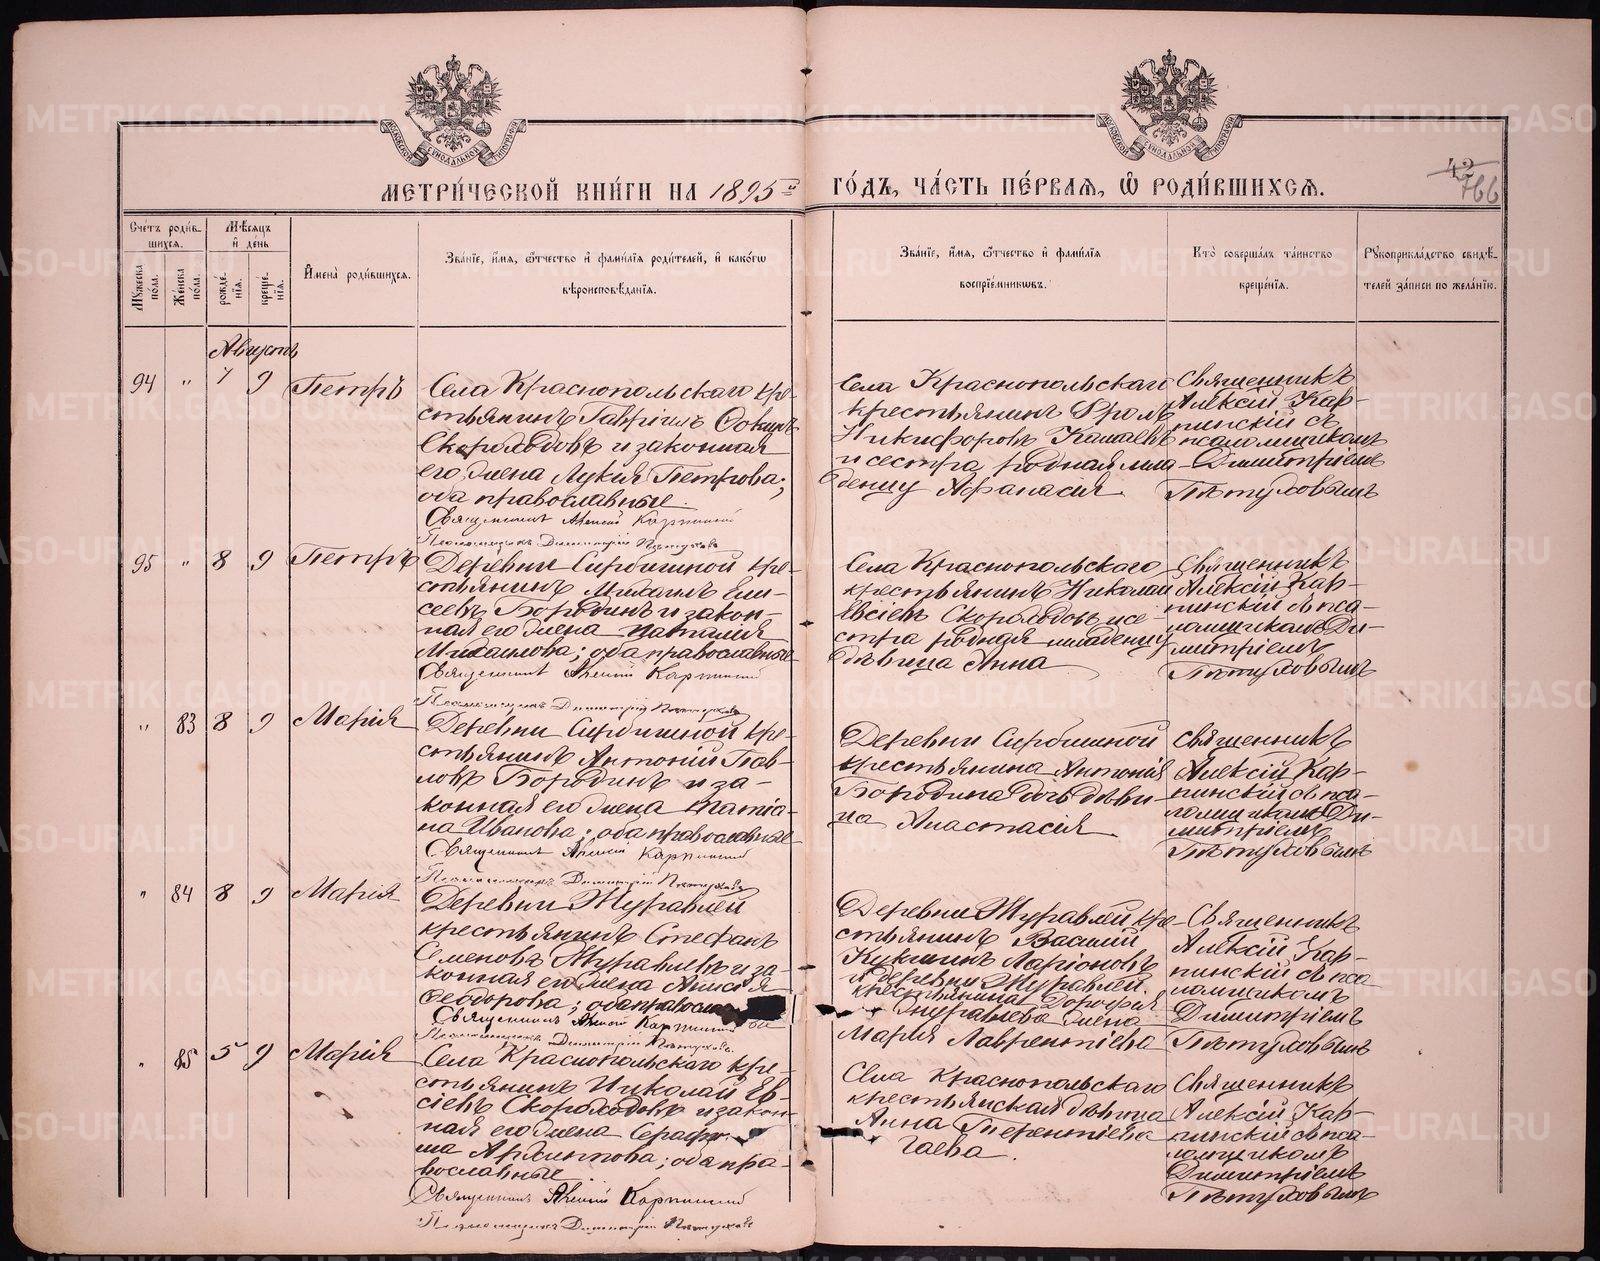 МОСКОВСКОЙ СѴНОДАЛЬНОЙ ТИПОГРАФІИ
МОСКОВСКОЙ СѴНОДАЛЬНОЙ ТИПОГРАФІИ
МЕТРИ́ЧЕСКОЙ КНИ́ГИ НА 1895й ГО́ДЪ, ЧА́СТЬ ПЕ́РВАѦ, Ѡ҆ РОДИ́ВШИХСѦ.
42
766
Счетъ роди́в-
шихсѧ.
Мѣ́сѧцъ
и҆ де́нь
Мꙋ́жеска по́ла.
Же́нска по́ла.
рожде́-нїѧ.
креще́-нїѧ.
И҆мена̀ роди́вшихсѧ.
Зва́нїе, и҆́мѧ, ѻ҆́тчество и҆ фами́лїѧ роди́телей, и҆ како́гѡ
вѣроисповѣ́данїѧ.
Зва́нїе, и҆́мѧ, ѻ҆́тчество и҆ фами́лїѧ
воспрїе́мникѡвъ.
Кто̀ соверша́лъ та́инство
креще́нїѧ.
Рꙋкоприкла́дство свидѣ́-
телей за́писи по жела́нїю.
Августъ
94 " 7 9 Петръ
Села Краснопольскаго кре-
стьянинъ Гавріилъ
Скороходовъ и законная
его жена Лукія Петрова;
оба православные.
Священникъ Алексій Карпинскій
Псаломщикъ Димитрій Пѣтуховъ
Села Краснопольскаго
крестьянинъ Фролъ
Никифоровъ
и сестра родная мла-
денцу Афанасія
Священникъ
Алексій Кар-
пинскій съ
псаломщикомъ
Димитріемъ
Пѣтуховымъ
95 " 8 9 Петръ
Деревни Сербишиной кре-
стьянинъ Михаилъ Ели-
сеевъ Бородинъ и закон-
ная его жена Наталія
Михаилова; оба православные
Священникъ Алексій Карпинскій
Псаломщикъ Димитрій Пѣтуховъ
Села Краснопольскаго
крестьянинъ Николай
Евсіевъ Скороходовъ и се-
стра родная младенцу
дѣвица Анна
Священникъ
Алексій Кар-
пинскій съ пса-
ломщикомъ Ди-
митріемъ
Пѣтуховымъ
" 83 8 9 Марія
Деревни Сербишиной кре-
стьянинъ Антоній Пав-
ловъ Бородинъ и за-
конная его жена Татіа-
на Иванова; оба православные
Священникъ Алексій Карпинскій
Псаломщикъ Димитрій Пѣтуховъ
Деревни Сербишиной
крестьянина Антонія
Бородина дочь дѣви-
ца Анастасія
Священникъ
Алексій Кар-
пинскій съ пса-
ломщикомъ Ди-
митріемъ
Пѣтуховымъ
" 84 8 9 Марія
Деревни Журавлей
крестьянинъ Стефанъ
Семеновъ Журавлевъ и за-
конная его жена Анисія
Ѳеодорова; оба православные
Священникъ Алексій Карпинскій
Псаломщикъ Димитрій Пѣтуховъ
Деревни Журавлей кре-
стьянинъ Василій
Ларіоновъ
и деревни Журавлей
крестьянина Дорофея
Журавлева жена
Марія Лаврентіева
Священникъ
Алексій Кар-
пинскій съ пса-
ломщикомъ
Димитріемъ
Пѣтуховымъ
" 85 5 9 Марія
Села Краснопольскаго кре-
стьянинъ Николай Ев-
сіевъ Скороходовъ и закон-
ная его жена Серафи-
ма Архиппова; оба пра-
вославные
Священникъ Алексій Карпинскій
Псаломщикъ Димитрій Пѣтуховъ
Села Краснопольскаго
крестьянская дѣвица
Анна Терентіева
Гаева.
Священникъ
Алексій Кар-
пинскій съ пса-
ломщикомъ
Димитріемъ
Пѣтуховымъ
METRIKI.GASO-URAL.RU